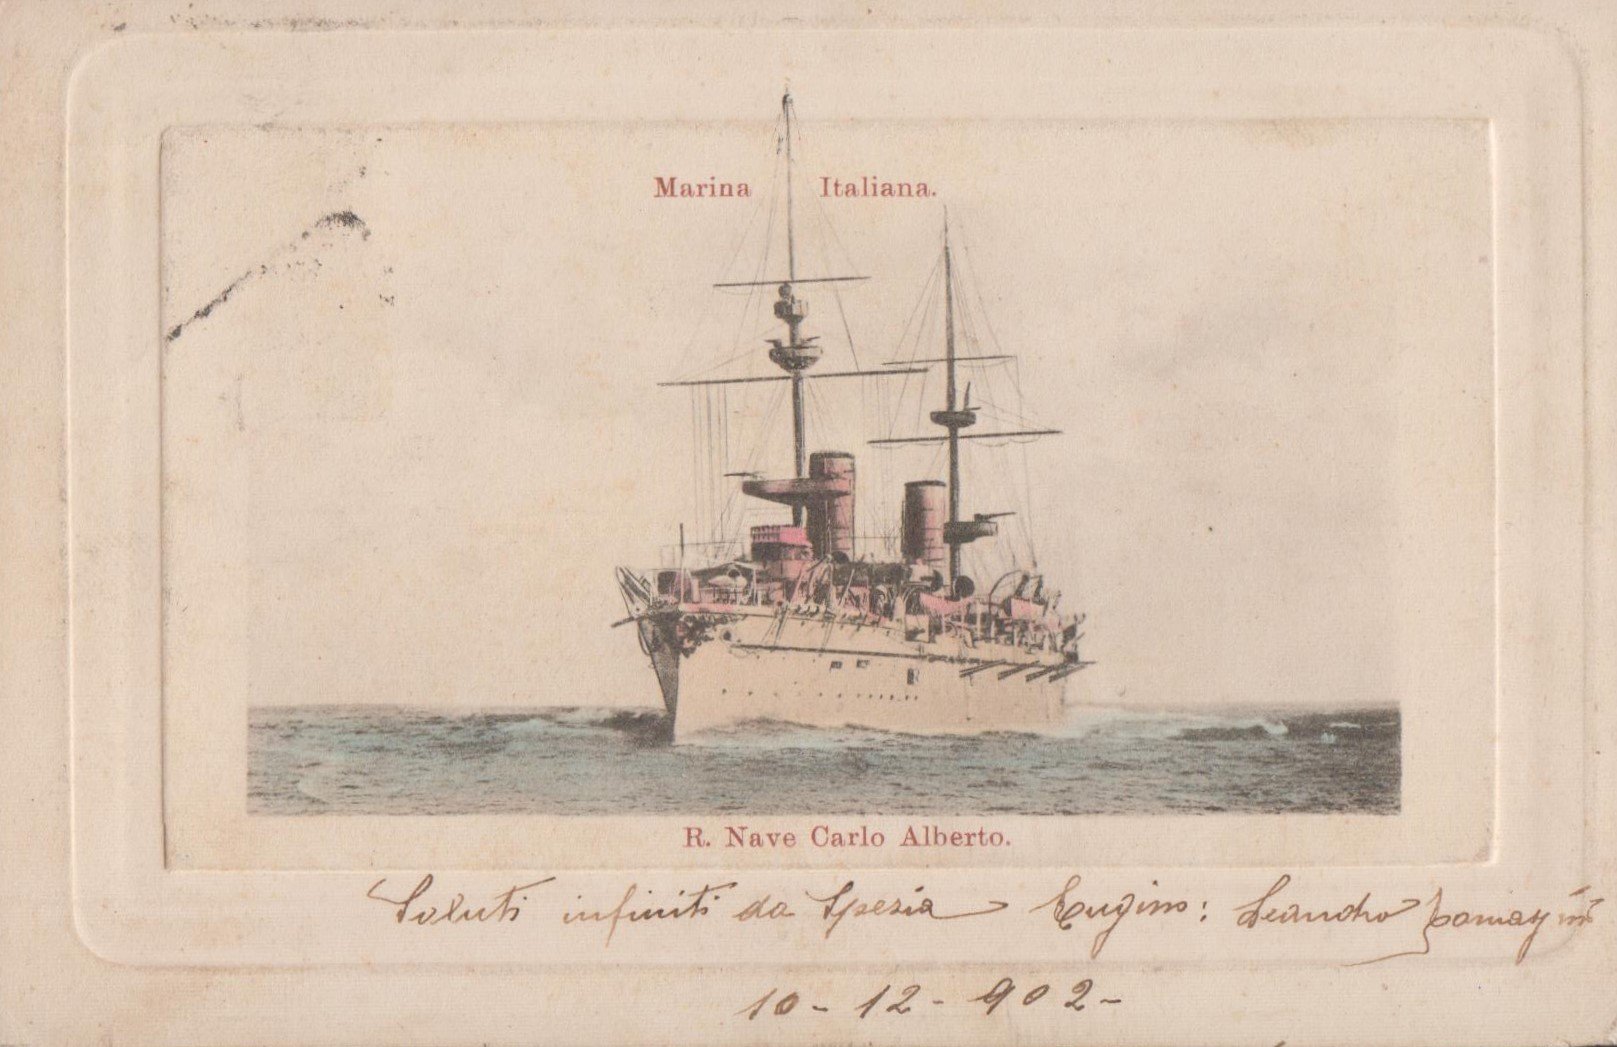 Marina Italiana.
R. Nave Carlo Alberto.
Saluti infiniti da Spezia Leandro
10-12-902-